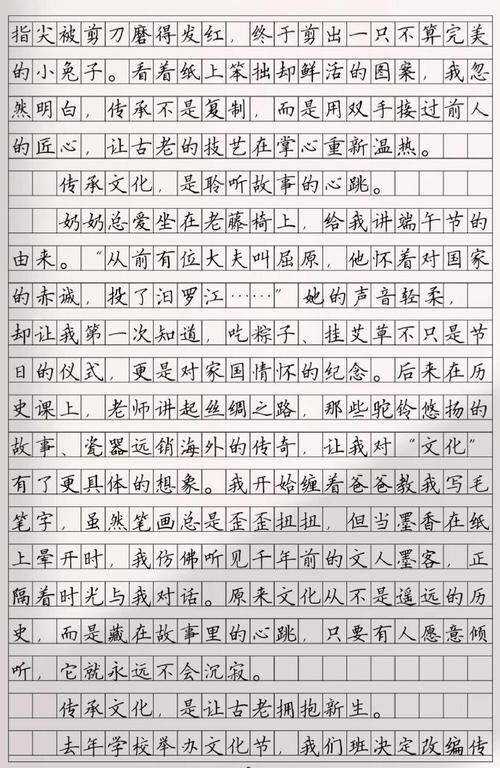 指尖被剪刀磨得发红，终于剪出一只不算完美
的小兔子。看着纸上笨拙却鲜活的图案，我忽
然明白，传承不是复制，而是用双手接过前人
的匠心，让古老的技艺在掌心重新温热。
传承文化，是聆听故事的心跳。
奶奶总爱坐在老藤椅上，给我讲端午节的
由来。“从前有位大夫叫屈原，他怀着对国家
的赤诚，投了汨罗江……”她的声音轻柔，
却让我第一次知道，吃粽子、挂艾草不只是节
日的仪式，更是对家国情怀的纪念。后来在历
史课上，老师讲起丝绸之路，那些驼铃悠扬的
故事、瓷器远销海外的传奇，让我对“文化”
有了更具体的想象。我开始缠着爸爸教我写毛
笔字，虽然笔画总是歪歪扭扭，但当墨香在纸
上晕开时，我仿佛听见千年前的文人墨客，正
隔着时光与我对话。原来文化从不是遥远的历
史，而是藏在故事里的心跳，只要有人愿意倾
听，它就永远不会沉寂。
传承文化，是让古老拥抱新生。
去年学校举办文化节，我们班决定改编传